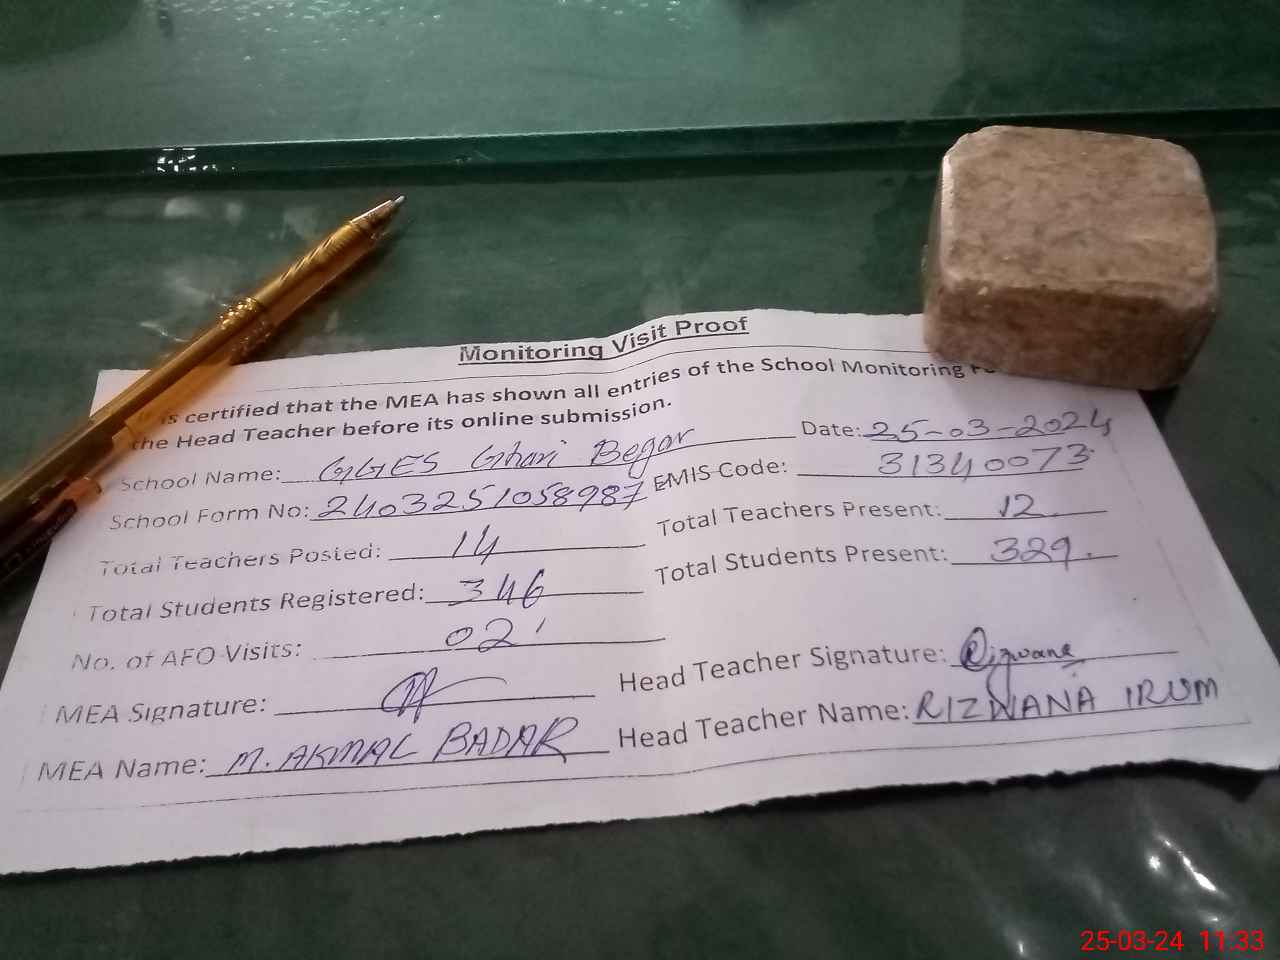 Monitoring Visit Proof
is certified that the MEA has shown all entries of the School Monitoring
the Head Teacher before its online submission.
School Name: GGES Ghari Begar Date: 25-03-2024
School Form No: 2403251058987 EMIS Code: 31340073
Total Teachers Posted: 14 Total Teachers Present: 12
Total Students Registered: 346 Total Students Present: 329.
No. of AFO Visits: 02
MEA Signature: Head Teacher Signature: Rizwana
MEA Name: M. AKMAL BADAR Head Teacher Name: RIZWANA IRUM
25-03-24 11:33